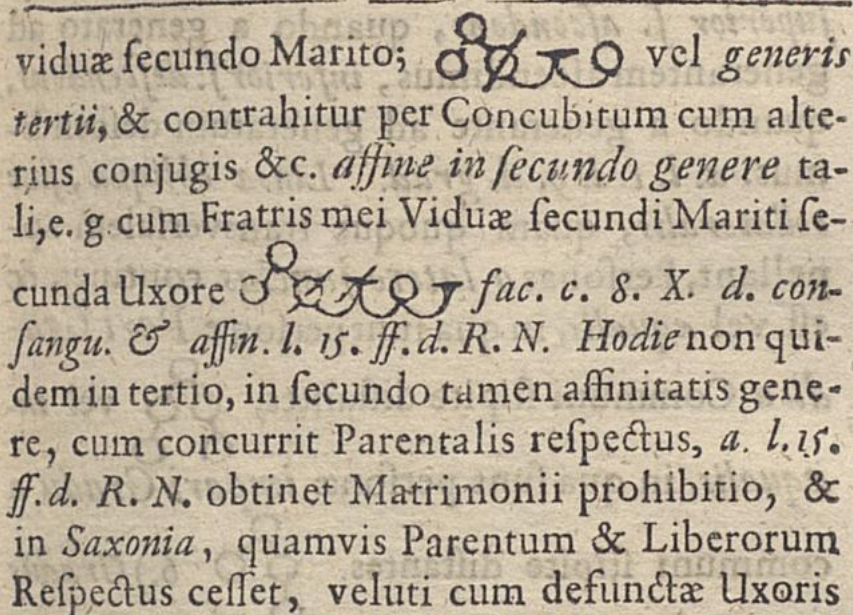 viduæ ſecundo Marito; vel generis
tertii, & contrahitur per Concubitum cum alte-
rius conjugis &c. affine in ſecundo genere ta-
li, e. g. cum Fratris mei Viduæ ſecundi Mariti ſe-
cunda Uxore fac. c. 8. X. d. con-
ſangu. & affin. l. 15. ff. d. R. N. Hodie non qui-
dem in tertio, in ſecundo tamen affinitatis gene-
re, cum concurrit Parentalis reſpectus, a. l. 15.
ff. d. R. N. obtinet Matrimonii prohibitio, &
in Saxonia, quamvis Parentum & Liberorum
Reſpectus ceſſet, veluti cum defunctæ Uxoris